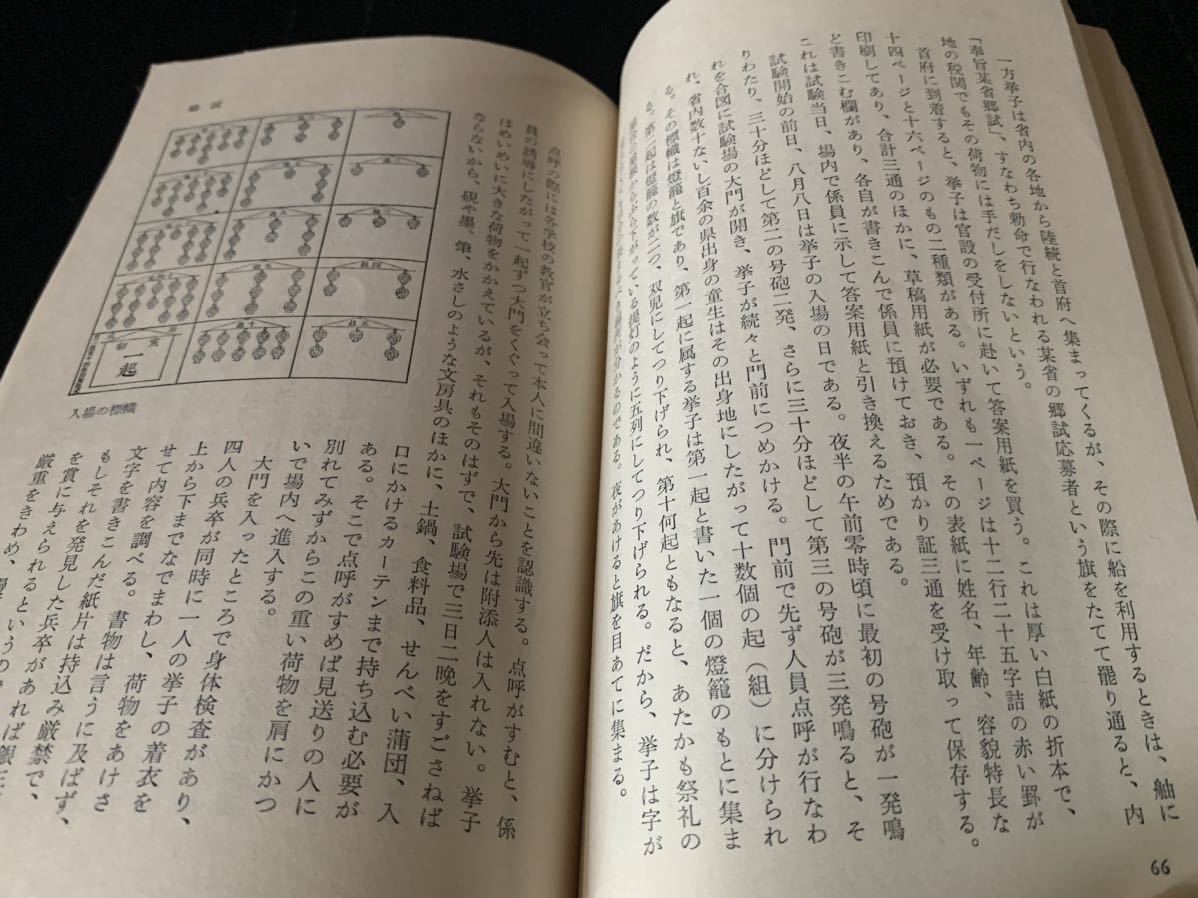 一方挙子は省内の各地から陸続と首府へ集まってくるが、その際に船を利用するときは、舳に
「奉旨某省郷試」、すなわち勅命で行なわれる某省の郷試応募者という旗をたてて罷り通ると、内
地の税関でもその荷物には手だしをしないという。
首府に到着すると、挙子は官設の受付所に赴いて答案用紙を買う。これは厚い白紙の折本で、
十四ページと十六ページのもの二種類がある。いずれも一ページは十二行二十五字詰の赤い罫が
印刷してあり、合計三通のほかに、草稿用紙が必要である。その表紙に姓名、年齢、容貌特長な
ど書きこむ欄があり、各自が書きこんで係員に預けておき、預かり証三通を受け取って保存する。
これは試験当日、場内で係員に示して答案用紙と引き換えるためである。
試験開始の前日、八月八日は挙子の入場の日である。夜半の午前零時頃に最初の号砲が一発鳴
りわたり、三十分ほどして第二の号砲二発、さらに三十分ほどして第三の号砲が三発鳴ると、そ
れを合図に試験場の大門が開き、挙子が続々と門前につめかける。門前で先ず人員点呼が行なわ
れ、省内数十ないし百余の県出身の童生はその出身地にしたがって十数個の起（組）に分けられ
る。その標識は燈籠と旗であり、第一起に属する挙子は第一起と書いた一個の燈籠のもとに集ま
る。第二起は燈籠の数が二つ、双児にしてつり下げられ、第十何起ともなると、あたかも祭礼の
からぶら下がっている提灯のように五列にしてつり下げられる。だから、挙子は字が
が分かるのである。夜があけると旗を目あてに集まる。
66
郷試
入場の標識
一起
点呼の際には各学校の教官が立ち会って本人に間違いないことを認識する。点呼がすむと、係
員の誘導にしたがって一起ずつ大門をくぐって入場する。大門から先は附添人は入れない。挙子
はめいめいに大きな荷物をかかえているが、それもそのはずで、試験場で三日二晩をすごさねば
ならないから、硯や墨、筆、水さしのような文房具のほかに、土鍋、食料品、せんべい蒲団、入
口にかけるカーテンまで持ち込む必要が
ある。そこで点呼がすめば見送りの人に
別れてみずからこの重い荷物を肩にかつ
いで場内へ進入する。
大門を入ったところで身体検査があり、
四人の兵卒が同時に一人の挙子の着衣を
上から下までなでまわし、荷物をあけさ
せて内容を調べる。書物は言うに及ばず、
文字を書きこんだ紙片は持込み厳禁で、
もしそれを発見した兵卒があれば銀三
を賞に与えられるというので
厳重をきわめ、